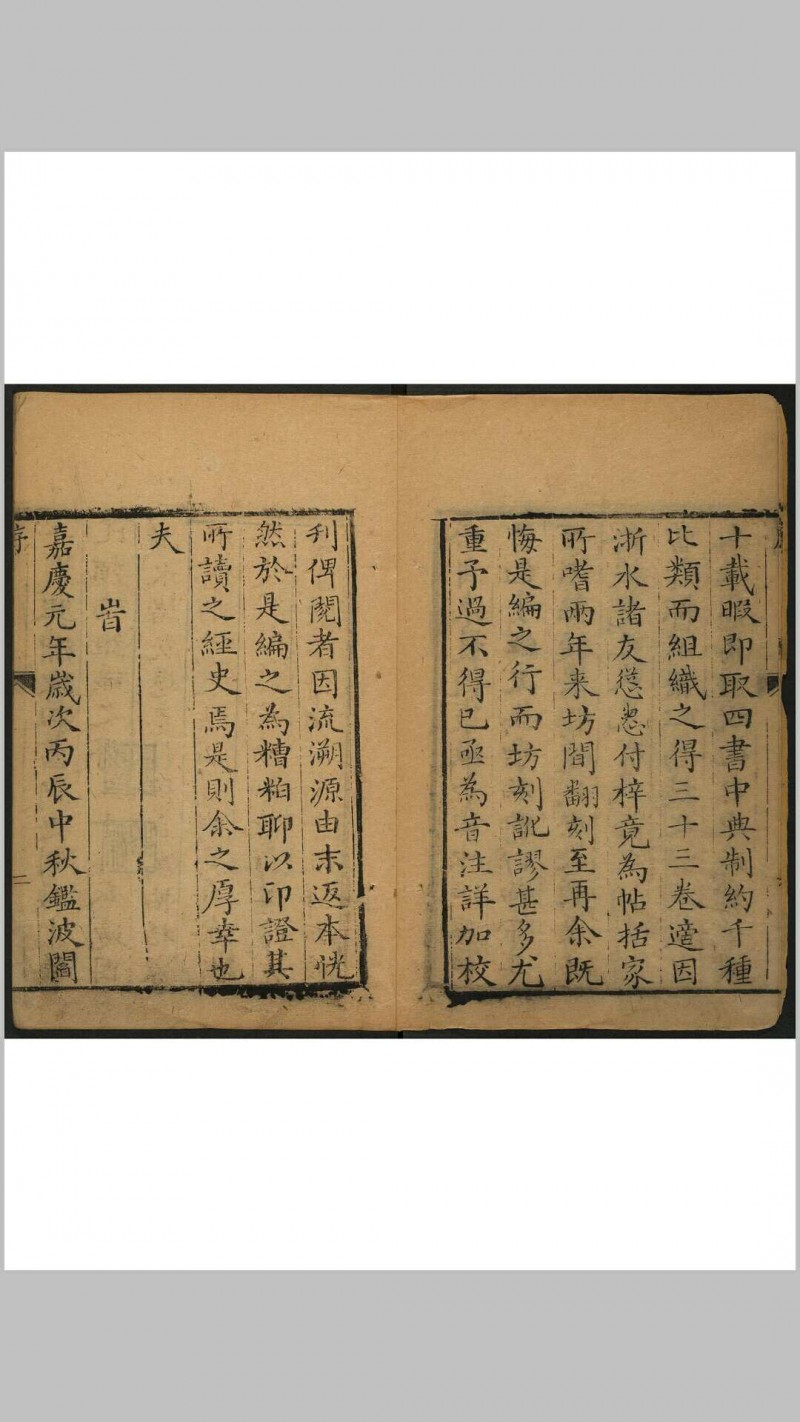 十載暇即取四書中典制約千種
比類而組織之得三十三卷適因
浙水諸友慫恿付梓竟為帖括家
所嗜兩年来坊間翻刻至再余既
悔是編之行而坊刻訛謬甚多尤
重予過不得已亟為音注詳加校
刊俾閱者因流溯源由末返本恍
然於是編之為糟粕聊以印證其
所讀之經史焉是則余之厚幸也
夫
旹
嘉慶元年歲次丙辰中秋鑑波閣
序